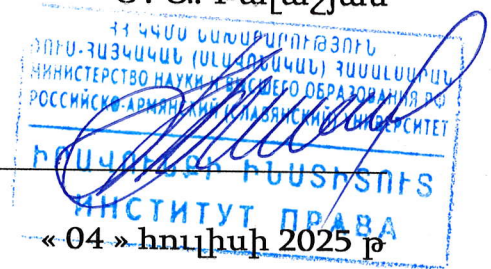 ՀՀ ԿԳՄՍ ՆԱԽԱՐԱՐՈՒԹՅՈՒՆ
ՌՈՒՍ-ՀԱՅԿԱԿԱՆ (ՍԼԱՎՈՆԱԿԱՆ) ՀԱՄԱԼՍԱՐԱՆ
МИНИСТЕРСТВО НАУКИ И ВЫСШЕГО ОБРАЗОВАНИЯ РФ
РОССИЙСКО-АРМЯНСКИЙ (СЛАВЯНСКИЙ) УНИВЕРСИТЕТ
ԻՐԱՎՈՒՆՔԻ ԻՆՍՏԻՏՈՒՏ
ИНСТИТУТ ПРАВА
« 04 » հուլիսի 2025 թ